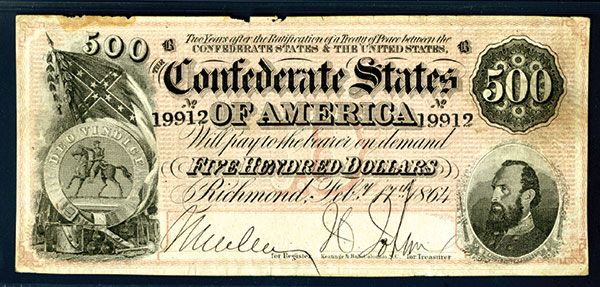 500 B Two Years after the Ratification of a Treaty of Peace between the B
CONFEDERATE STATES & THE UNITED STATES,
THE Confederate States 500
No No
19912 OF AMERICA 19912
DEO VINDICE
Will pay to the bearer on demand
FIVE HUNDRED DOLLARS
Richmond, Feby. 17th 1864
for Register Keatinge & Ball, Columbia, S.C. for Treasurer